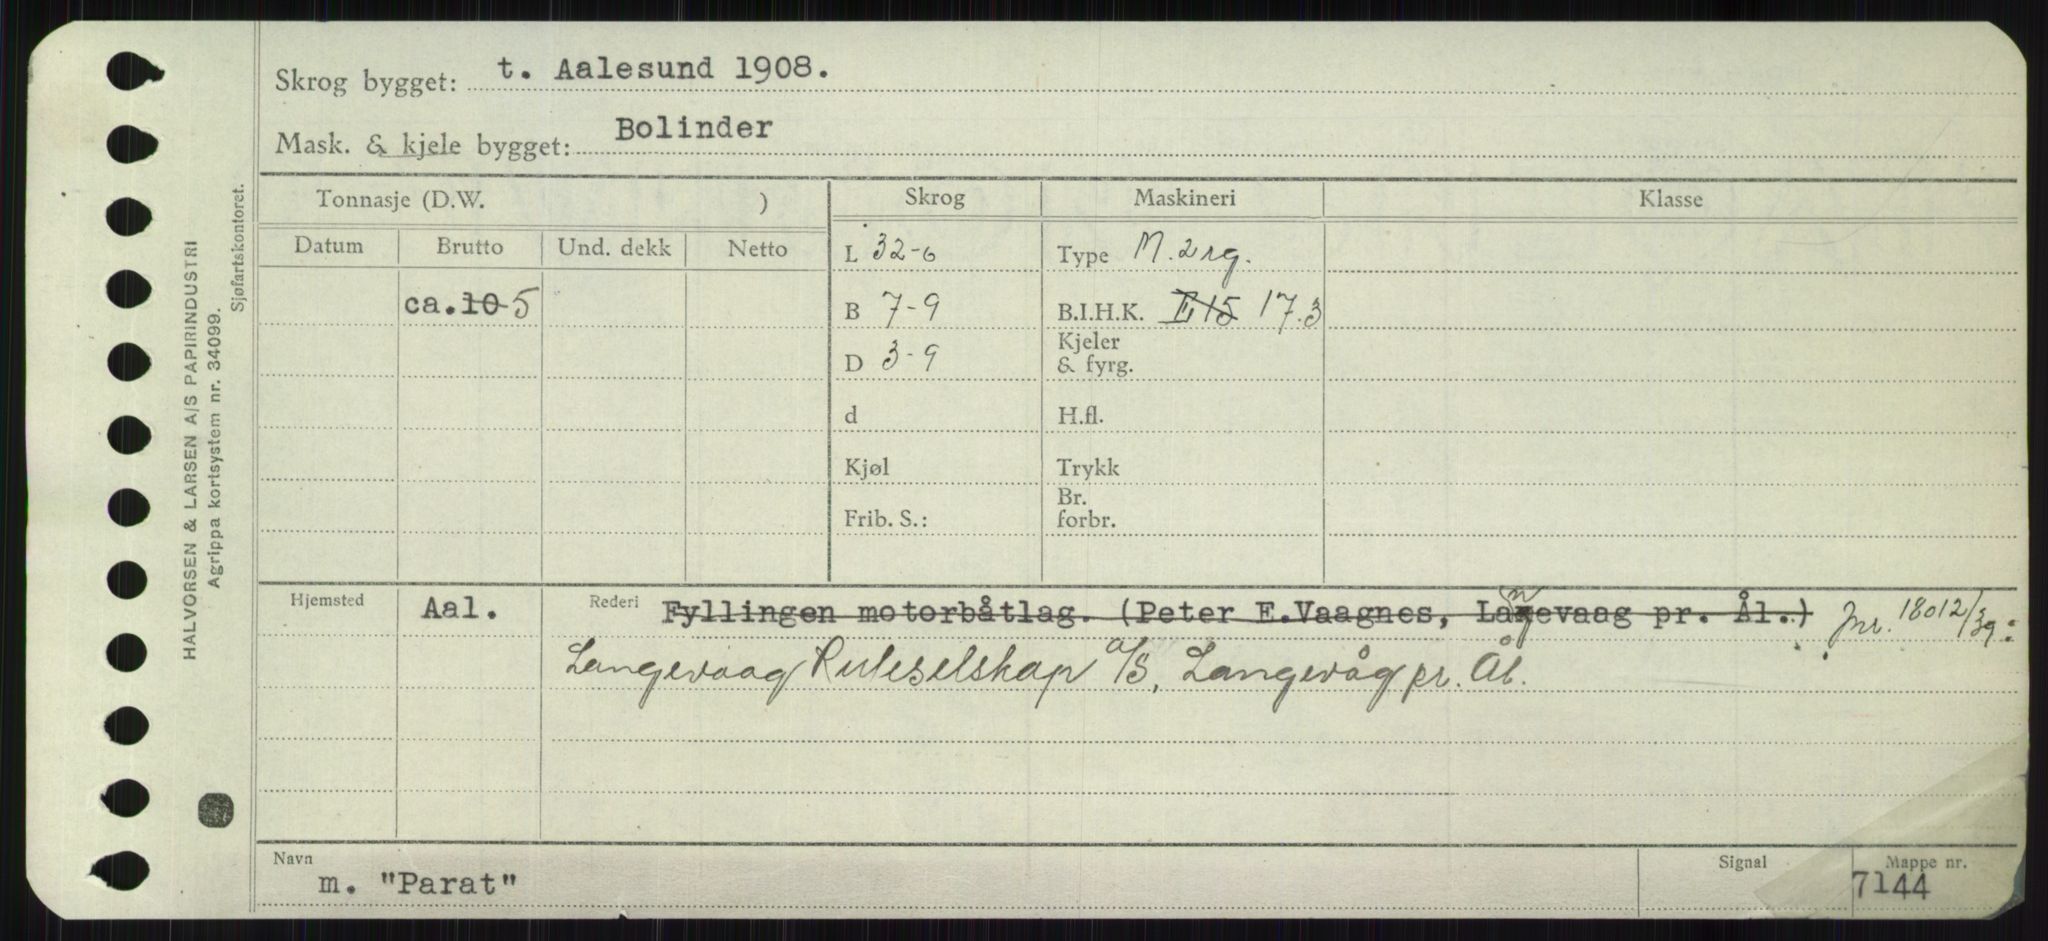 Skrog bygget: t. Aalesund 1908.
Mask. & kjele bygget: Bolinder
Tonnasje (D.W. ) Skrog Maskineri Klasse
Datum Brutto Und. dekk Netto
L 32-6 Type M. 2 rg.
ca. 10 5 B 7-9 B.I.H.K. E 15 17.3
D 3-9 Kjeler & fyrg.
d H.fl.
Kjøl Trykk
Frib. S.: Br. forbr.
Hjemsted Aal. Rederi Fyllingen motorbåtlag. (Peter E.Vaagnes, Langevaag pr. Ål.) Jnr. 18012/39:
Langevaag Ruteselskap A/S, Langevåg pr. Ål.
Navn m. "Parat" Signal Mappe nr. 7144
HALVORSEN & LARSEN A/S PAPIRINDUSTRI
Agrippa kortsystem nr. 34099.
Sjøfartskontoret.